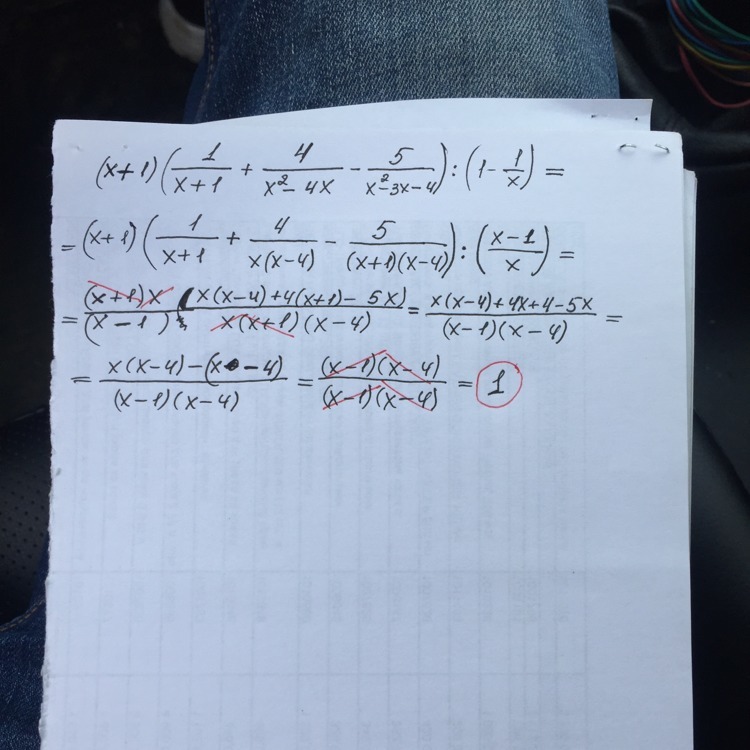 (x+1)(1/(x+1) + 4/(x²-4x) - 5/(x²-3x-4)) : (1 - 1/x) =
= (x+1)(1/(x+1) + 4/(x(x-4)) - 5/((x+1)(x-4))) : ((x-1)/x) =
= (x+1)x/(x-1) · (x(x-4)+4(x+1)-5x)/(x(x+1)(x-4)) = (x(x-4)+4x+4-5x)/((x-1)(x-4)) =
= (x(x-4)-(x-4))/((x-1)(x-4)) = ((x-1)(x-4))/((x-1)(x-4)) = 1